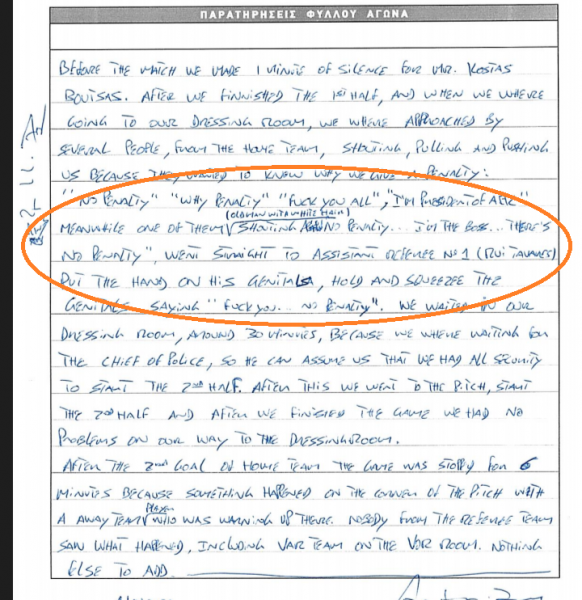 ΠΑΡΑΤΗΡΗΣΕΙΣ ΦΥΛΛΟΥ ΑΓΩΝΑ
BEFORE THE MATCH WE MADE 1 MINUTE OF SILENCE FOR MR. KOSTAS
BOUTSAS. AFTER WE FINNISHED THE 1st HALF, AND WHEN WE WHERE
GOING TO OUR DRESSING ROOM, WE WHERE APPROACHED BY
SEVERAL PEOPLE, FROM THE HOME TEAM, SHOUTING, PULLING AND PUSHING
US BECAUSE THEY WANTED TO KNEW WHY WE GIVE A PENALTY:
"NO PENALTY" "WHY PENALTY" "FUCK YOU ALL", "I'M PRESIDENT OF
(OLDMAN WITH WHITE HAIR)
MEANWHILE ONE OF THEM SHOUTING NO PENALTY... I'M THE BOSS... THERE'S
NO PENALTY", WENT STRAIGHT TO ASSISTANT REFEREE Nº1 (RUI TAVARES)
PUT THE HAND ON HIS GENITALS, HOLD AND SQUEEZEE THE
GENITALS SAYING "FUCK YOU... NO PENALTY". WE WAITED IN OUR
DRESSING ROOM, AROUND 30 MINUTES, BECAUSE WE WHERE WAITING FOR
THE CHIEF OF POLICE, SO HE CAN ASSUME US THAT WE HAD ALL SECURITY
TO START THE 2nd HALF. AFTER THIS WE WENT TO THE PITCH, START
THE 2nd HALF AND AFTER WE FINISHED THE GAME WE HAD NO
PROBLEMS ON OUR WAY TO THE DRESSINGROOM.
AFTER THE 2nd GOAL OF HOME TEAM THE GAME WAS STOPP FOR 6
MINUTES BECAUSE SOMETHING HAPPENED ON THE CORNER OF THE PITCH WITH
PLAYER
A AWAY TEAM WHO WAS WARMING UP THERE. NOBODY FROM THE REFEREE TEAM
SAW WHAT HAPPENED, INCLUDING VAR TEAM ON THE VOR ROOM. NOTHING
ELSE TO ADD.